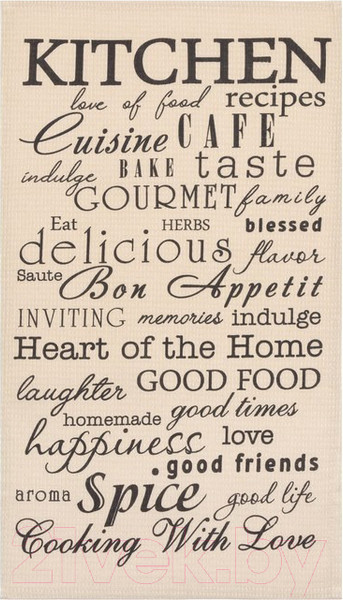 KITCHEN
love of food recipes
Cuisine CAFE
indulge BAKE taste
GOURMET family
Eat HERBS blessed
delicious flavor
Saute Bon Appetit
INVITING memories indulge
Heart of the Home
laughter GOOD FOOD
homemade good times
happiness love
good friends
aroma Spice good life
Cooking With Love
21vek.by